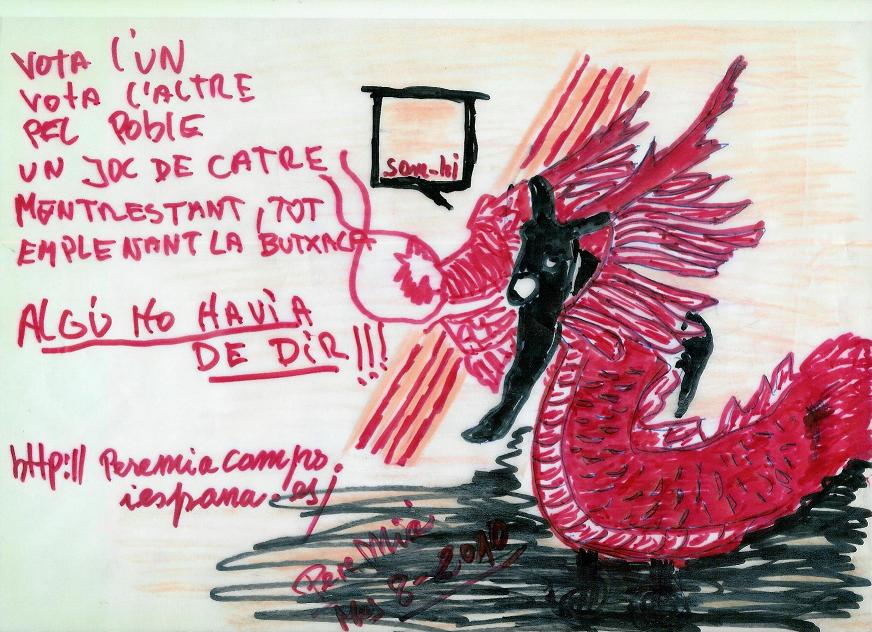 VOTA l'UN
VOTA L'ALTRE
PEL POBLE
UN JOC DE CATRE
MENTRESTANT, TOT
EMPLENANT LA BUTXACA
ALGÚ HO HAVIA
DE DIR!!!
som-hi
http:// Peremiacampo.
iespana.es/
PereMià
8-2010